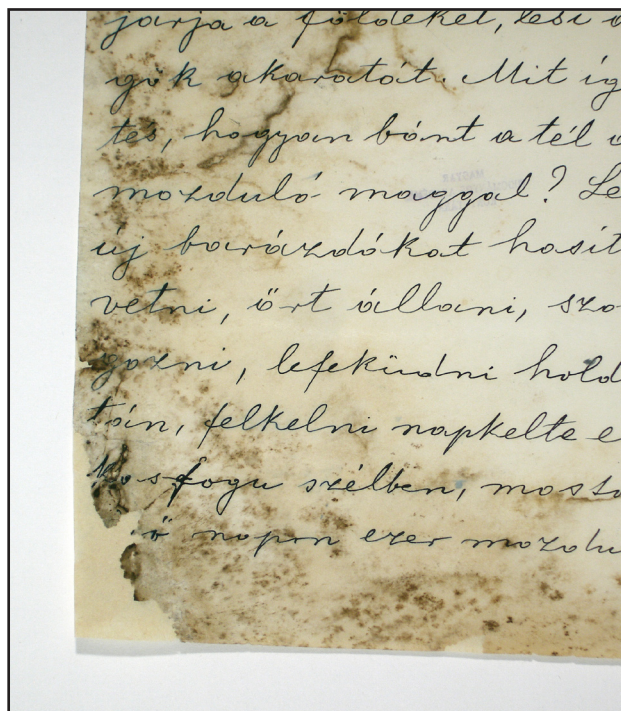 járja a földeket, lesi
gök akaratát. Mit íg
tés, hogyan bánt a tél a
mozduló maggal? Le
új barázdákat hasít
vetni, őrt állani, szo
gozni, lefeküdni hold
tán, felkelni napkelte e
kasfogu szélben, moszo
ő napon ezer mozdu
MAGYAR